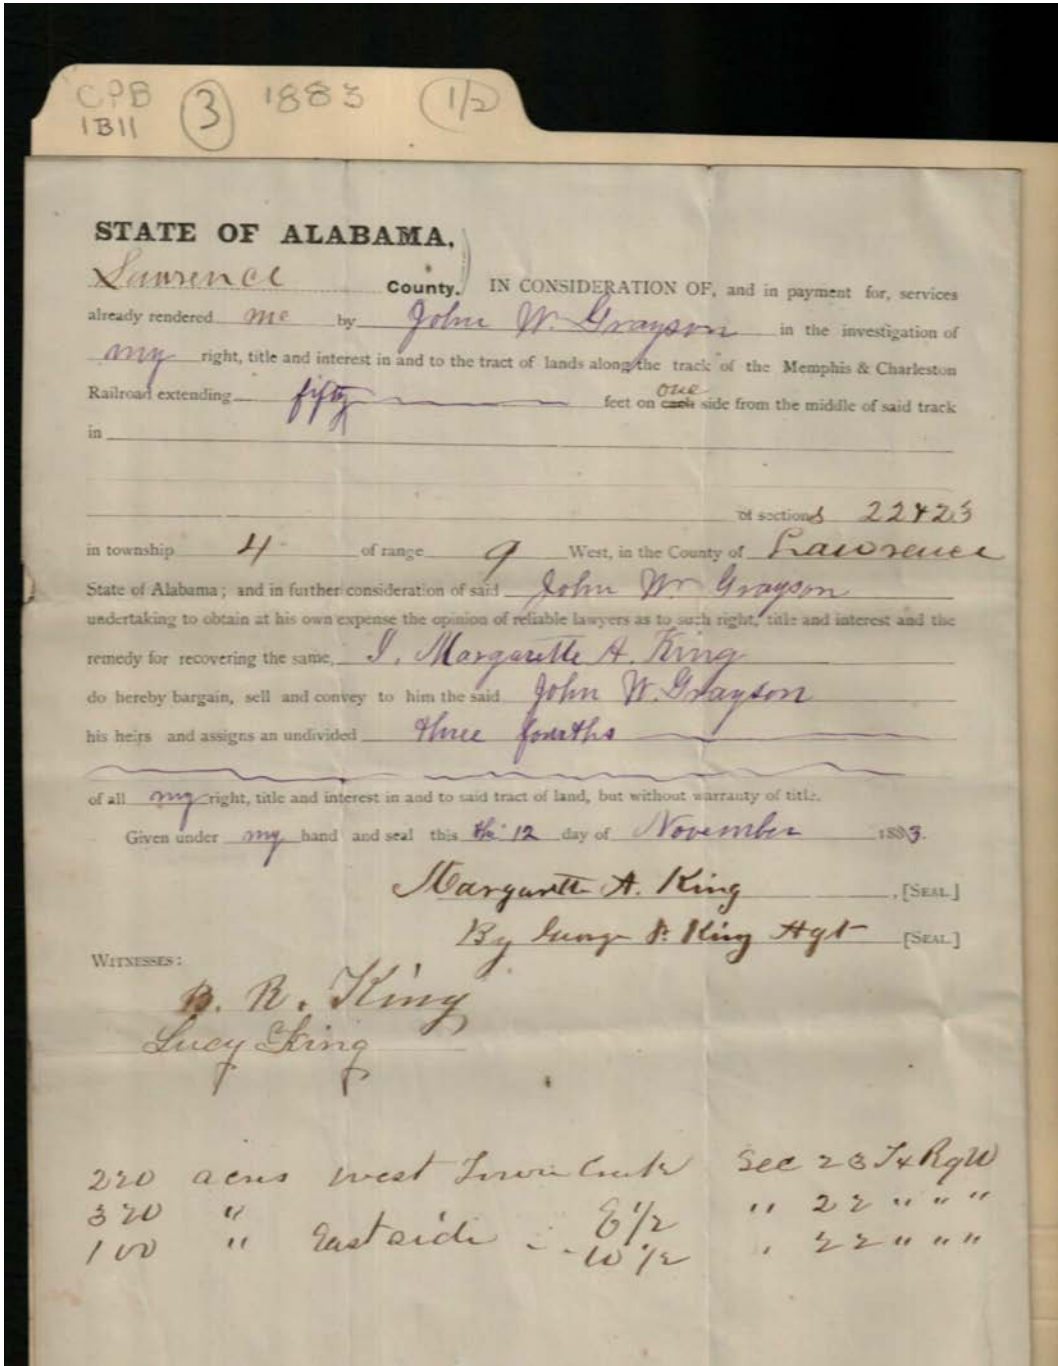 CPB 3 1883 1/2
1B11
STATE OF ALABAMA,
Lawrence County. IN CONSIDERATION OF, and in payment for, services
already rendered me by John W. Grayson in the investigation of
my right, title and interest in and to the tract of lands along the track of the Memphis & Charleston
Railroad extending fifty feet on each one side from the middle of said track
in
of sections 22 & 23
in township 4 of range 9 West, in the County of Lawrence
State of Alabama; and in further consideration of said John W Grayson
undertaking to obtain at his own expense the opinion of reliable lawyers as to such right, title and interest and the
remedy for recovering the same, I, Margarette A. King
do hereby bargain, sell and convey to him the said John W. Grayson
his heirs and assigns an undivided three fourths
of all my right, title and interest in and to said tract of land, but without warranty of title.
Given under my hand and seal this the 12 day of November 1883.
Margarette A. King, [SEAL]
By George P. King Agt [SEAL]
WITNESSES:
B. R. King
Lucy King
220 acres west Town Creek Sec 23 T4 R9W
320 " E 1/2 " 22 " " "
100 " East side W 1/2 " 22 " " "